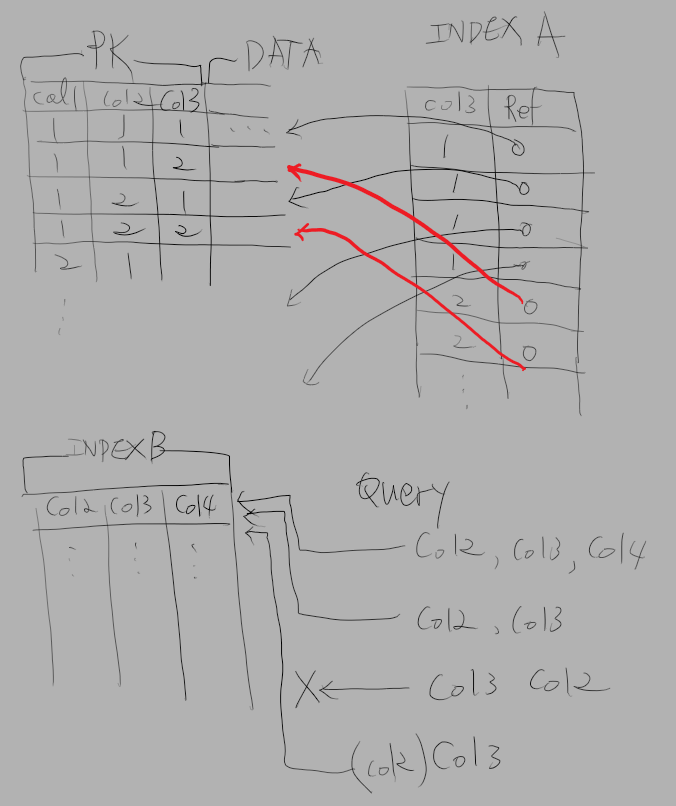 PK DATA
col1 col2 col3
1 1 1 ...
1 1 2
1 2 1
1 2 2
2 1
INDEX A
col3 Ref
1
1
1
1
2
2
INDEX B
Col2 Col3 Col4
Query
Col2, Col3, Col4
Col2, Col3
X Col3 Col2
(col2) Col3